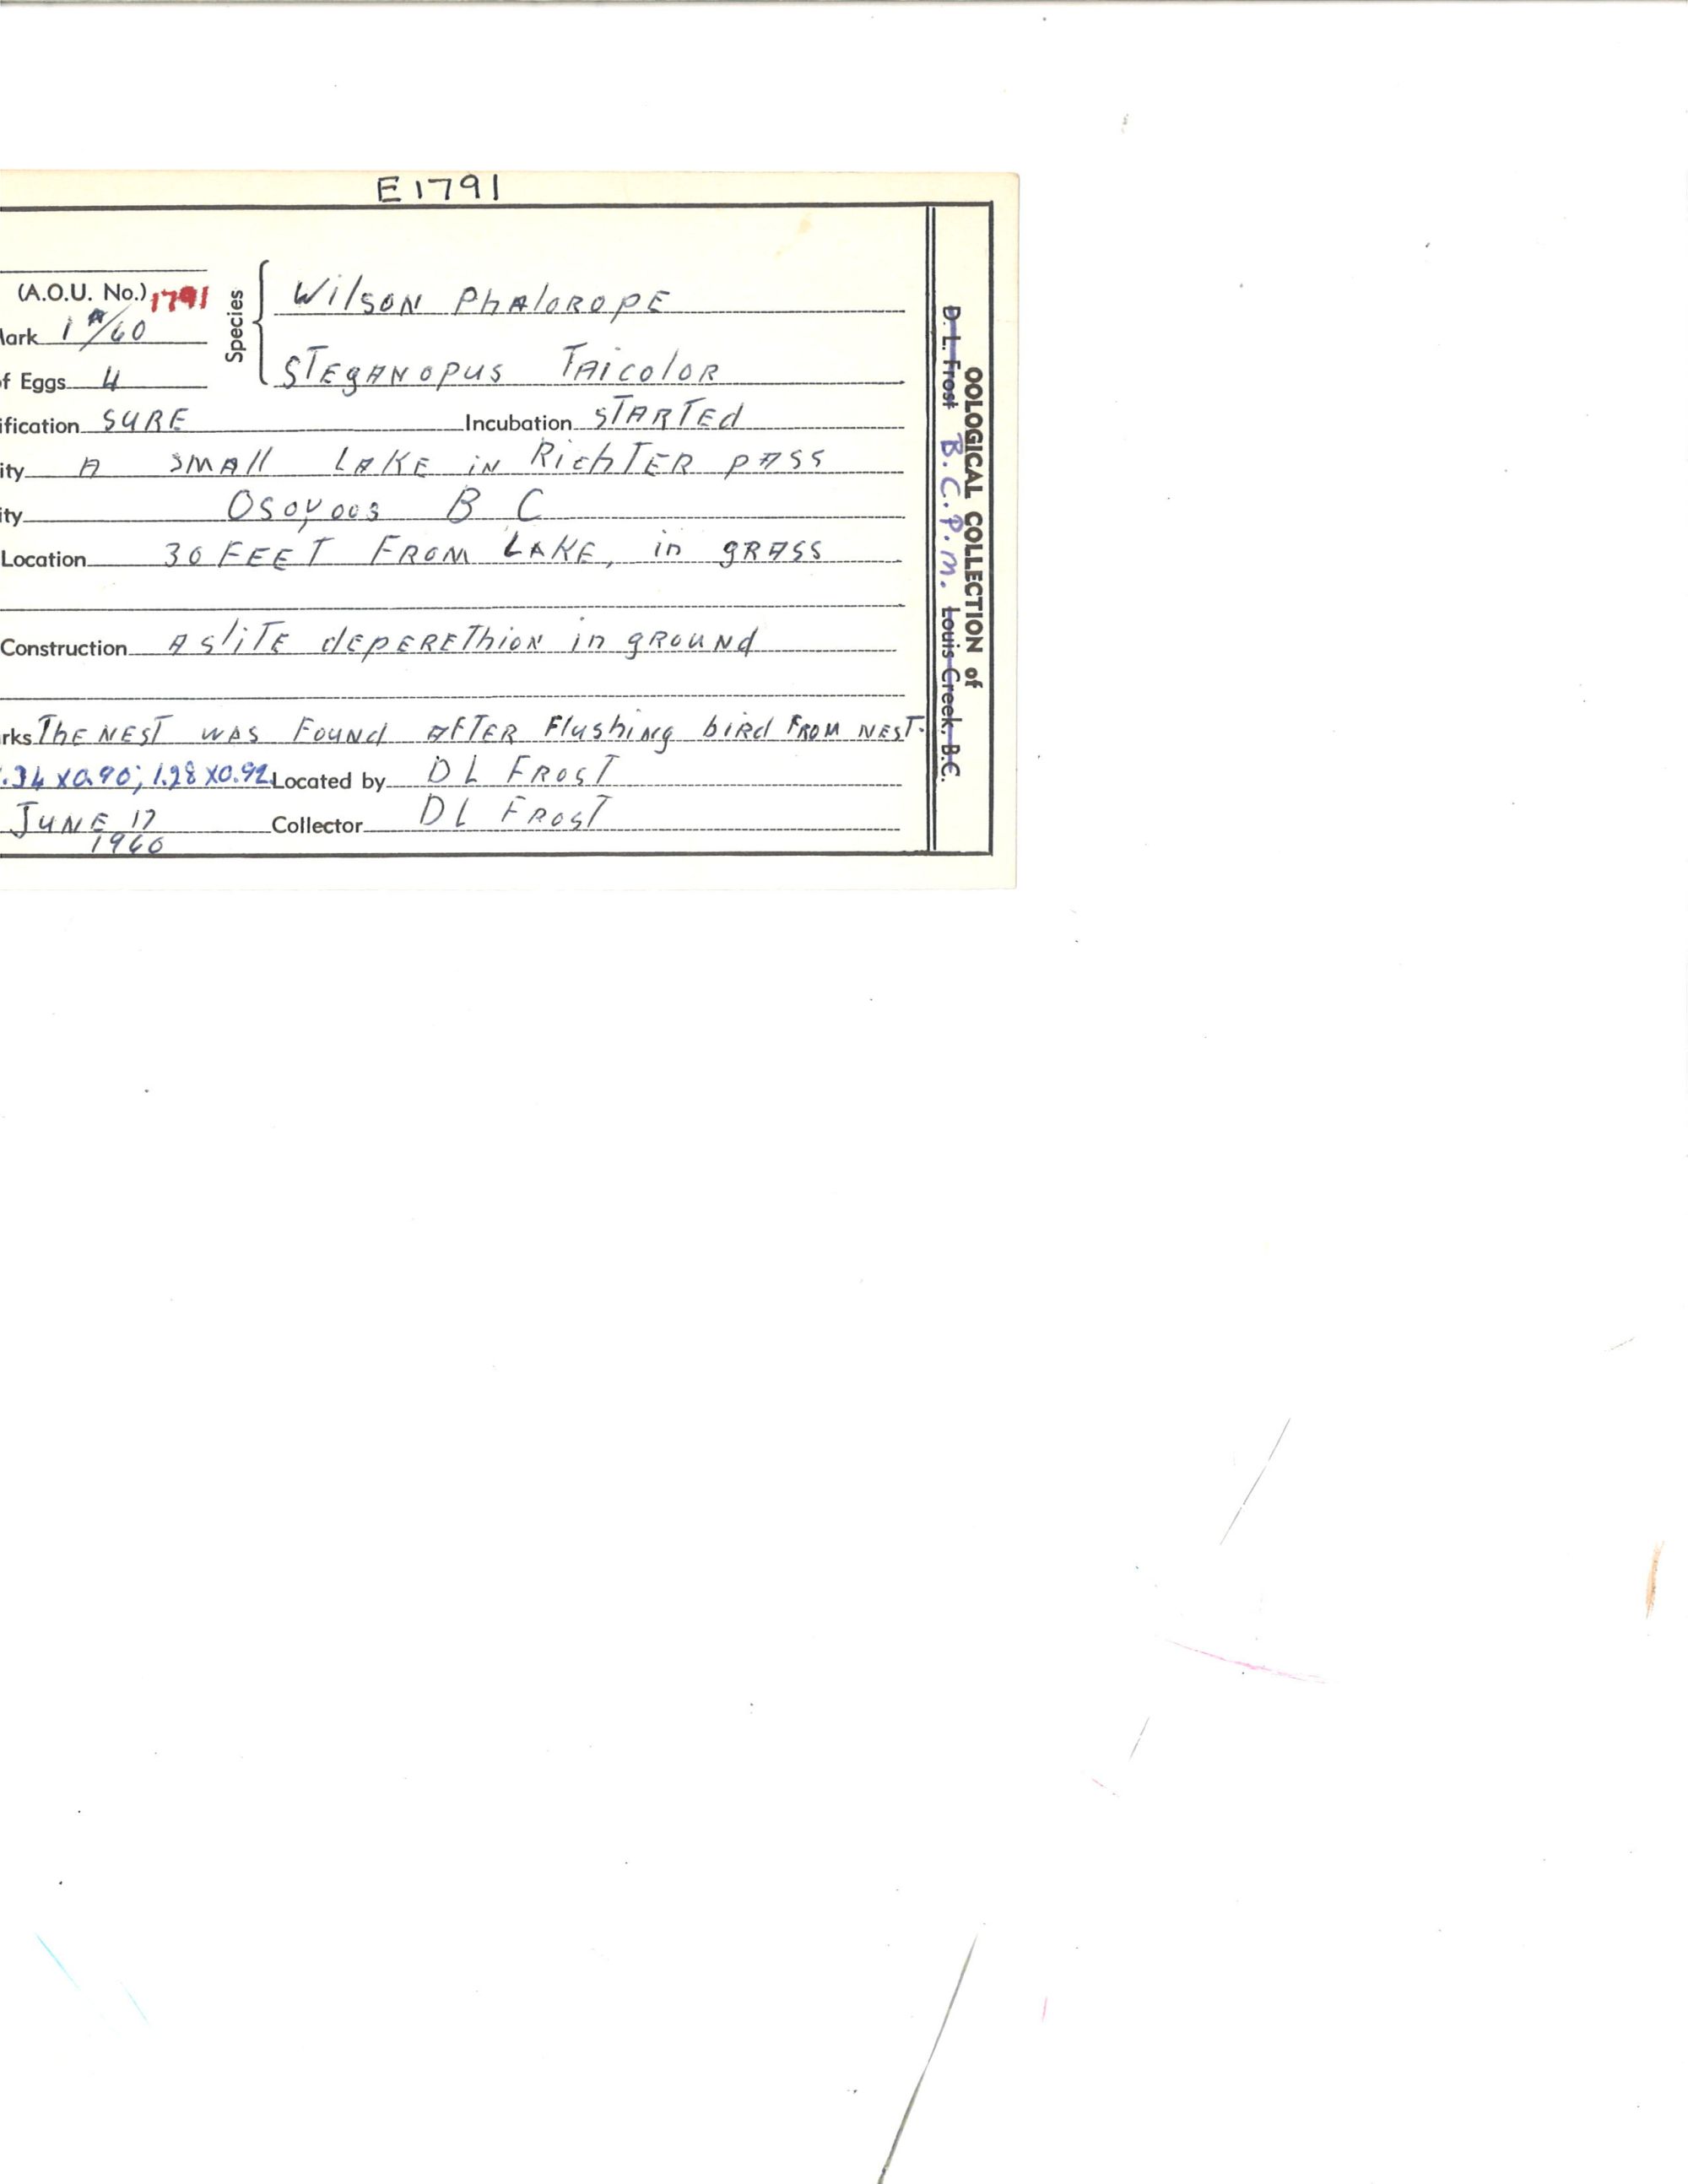 E1791
(A.O.U. No.) 1791
Wilson PhAloROPE
lark 1 A/60
Species
STEgANOPUS TRIcoloR
f Eggs 4
ification SURE Incubation STARTEd
ity A SMAll LAKE iN RichTER PASS
ity Osoyoos B C
Location 30 FEET FROM LAKE, in gRASS
Construction A sliTE dEPEREThioN in gROUNd
rks ThE NEST WAS FouNd AFTER Flushing biRd FROM NEST.
.34 X 0.90; 1.28 X 0.92 Located by D L FROST
JUNE 17 1960 Collector D L FROST
OOLOGICAL COLLECTION of
D. L. Frost B.C.P.M. Louis Creek, B.C.